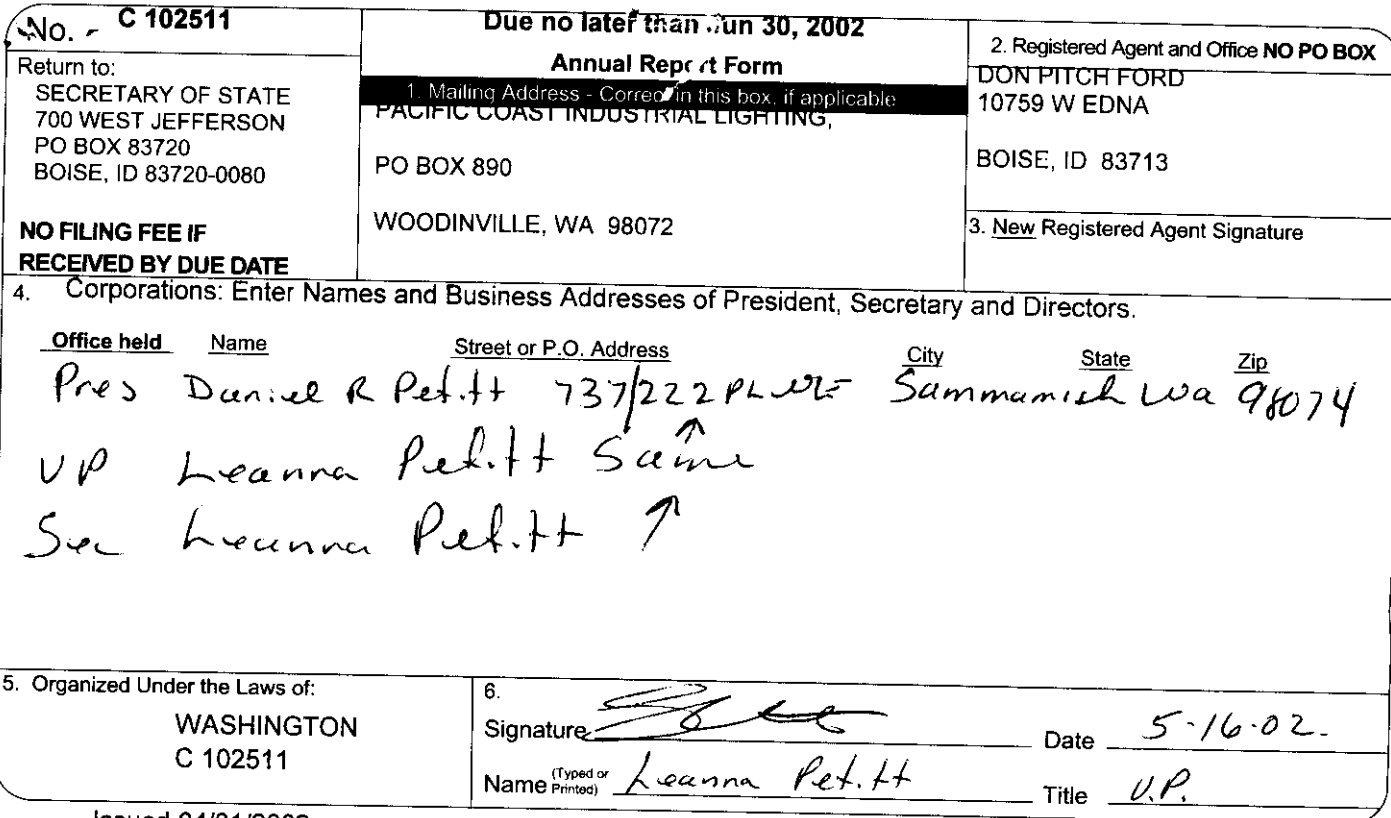 No. C 102511
Return to:
SECRETARY OF STATE
700 WEST JEFFERSON
PO BOX 83720
BOISE, ID 83720-0080
NO FILING FEE IF
RECEIVED BY DUE DATE
Due no later than Jun 30, 2002
Annual Report Form
1. Mailing Address - Correct in this box, if applicable
PACIFIC COAST INDUSTRIAL LIGHTING,
PO BOX 890
WOODINVILLE, WA 98072
2. Registered Agent and Office NO PO BOX
DON PITCH FORD
10759 W EDNA
BOISE, ID 83713
3. New Registered Agent Signature
4. Corporations: Enter Names and Business Addresses of President, Secretary and Directors.
Office held Name Street or P.O. Address City State Zip
Pres Daniel R Petitt 737 222 PL NE Sammamish Wa 98074
VP Leanna Petitt Same ↑
Sec Leanna Petitt ↑
5. Organized Under the Laws of:
WASHINGTON
C 102511
6.
Signature Date 5-16-02.
Name (Typed or Printed) Leanna Petitt Title V.P.